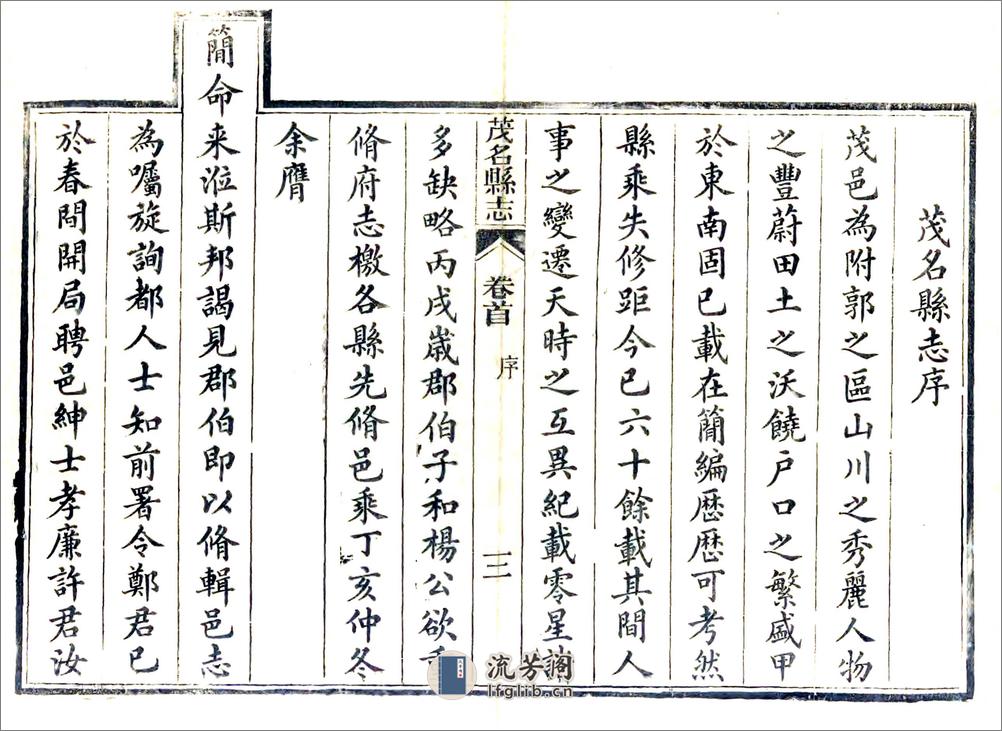 茂名縣志序
茂邑為附郭之區山川之秀麗人物
之豐蔚田土之沃饒户口之繁盛甲
於東南固已載在簡編歷歷可考然
縣乘失修距今已六十餘載其間人
事之變遷天時之互異紀載零星
茂名縣志 卷首 序 三
多缺略丙戌歲郡伯子和楊公欲
脩府志檄各縣先脩邑乘丁亥仲冬
余膺
簡命来涖斯邦謁見郡伯即以脩輯邑志
為囑旋詢都人士知前署令鄭君已
於春間開局聘邑紳士孝廉許君汝
流芳阁
lfglib.cn